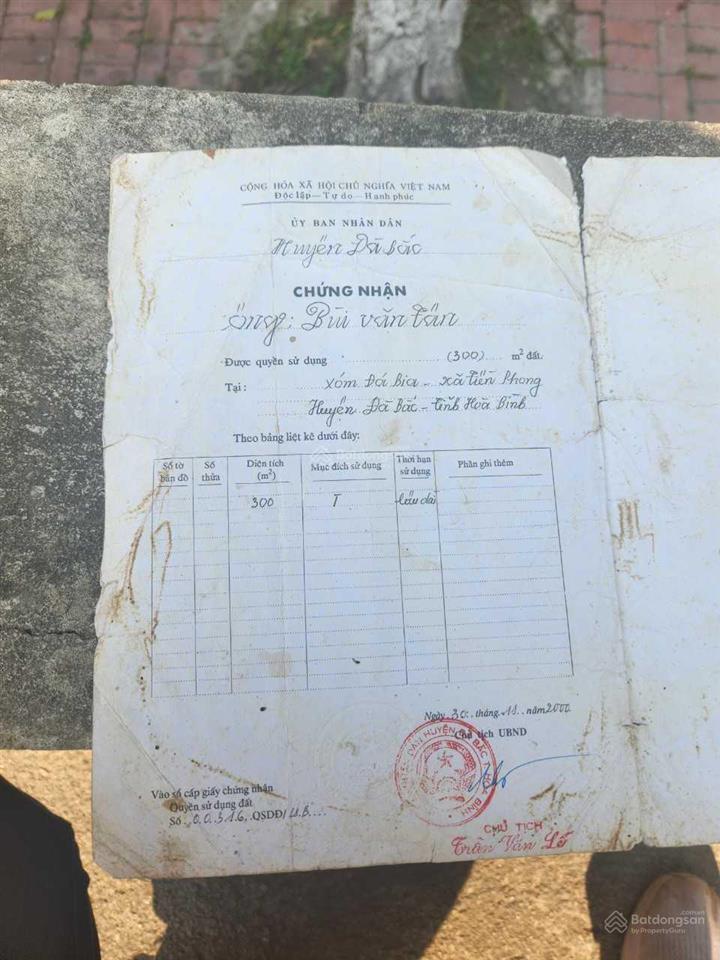 CỘNG HÒA XÃ HỘI CHỦ NGHĨA VIỆT NAM
Độc lập — Tự do — Hạnh phúc
ỦY BAN NHÂN DÂN
Huyện Đà Bắc
CHỨNG NHẬN
Ông: Bùi văn Tấn
Được quyền sử dụng (300) m² đất.
Tại: xóm Đá Bia - xã Tiền Phong
Huyện Đà Bắc - tỉnh Hoà Bình
Theo bảng liệt kê dưới đây:
Số tờ bản đồ Số thửa Diện tích (m²) Mục đích sử dụng Thời hạn sử dụng Phần ghi thêm
300 T lâu dài
Ngày 30 tháng 11 năm 2000
Chủ tịch UBND
DÂN HUYỆN ĐÀ BẮC HÒA BÌNH
Vào sổ cấp giấy chứng nhận
Quyền sử dụng đất
Số 00316 QSDĐ/
CHỦ TỊCH
Trần Văn
Batdongsan.com.vn
by PropertyGuru